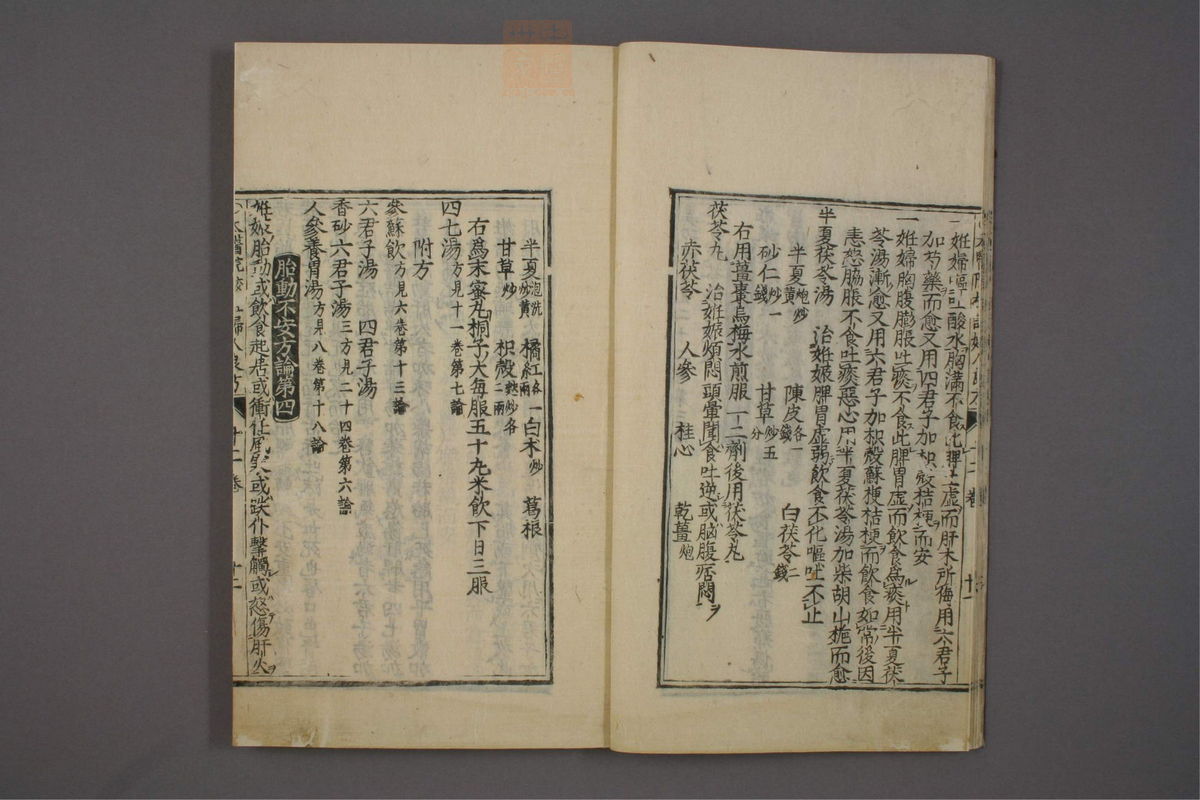 一妊婦嘔吐酸水胸滿不食此脾土虛而肝木所侮用六君子
加芍藥而愈又用四君子加枳殼桔梗而安
一妊婦胸腹膨脹吐痰不食此脾胃虛而飲食爲痰用半夏茯
苓湯漸愈又用六君子加枳殼蘇梗桔梗而飲食如常後因
恚怒脇脹不食吐痰惡心用半夏茯苓湯加柴胡山梔而愈
半夏茯苓湯 治妊娠脾胃虛弱飲食不化嘔吐不止
半夏炮炒黃 陳皮各一錢 白茯苓二錢
砂仁炒一錢 甘草炒五分
右用薑棗烏梅水煎服一二劑後用茯苓丸
茯苓丸 治妊娠煩悶頭暈聞食吐逆或胸腹痞悶
赤茯苓 人參 桂心 乾薑炮
半夏泡洗炒黃 橘紅各一兩 白朮炒 葛根
甘草炒 枳殼麩炒各二兩
右爲末蜜丸桐子大每服五十丸米飲下日三服
四七湯方見十一卷第七論
附方
參蘇飲方見六卷第十三論
六君子湯 四君子湯
香砂六君子湯三方見二十四卷第六論
人參養胃湯方見八卷第十八論
胎動不安方論第四
妊娠胎動或飲食起居或衝任風寒或跌仆擊觸或怒傷肝火
十二卷 十二